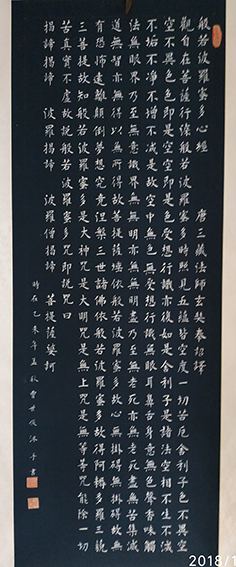 般若波羅蜜多心經 唐三藏法師玄奘奉詔譯
觀自在菩薩行深般若波羅蜜多時照見五蘊皆空度一切苦厄舍利子色不異空
空不異色色即是空空即是色受想行識亦復如是舍利子是諸法空相不生不滅
不垢不淨不增不減是故空中無色無受想行識無眼耳鼻舌身意無色聲香味觸
法無眼界乃至無意識界無無明亦無無明盡乃至無老死亦無老死盡無苦集滅
道無智亦無得以無所得故菩提薩埵依般若波羅蜜多故心無掛礙無掛礙故無
有恐怖遠離顛倒夢想究竟涅槃三世諸佛依般若波羅蜜多故得阿耨多羅三藐
三菩提故知般若波羅蜜多是大神咒是大明咒是無上咒是無等等咒能除一切
苦真實不虛故說般若波羅蜜多咒即說咒曰
揭諦揭諦 波羅揭諦 波羅僧揭諦 菩提薩婆訶
時在己未年孟秋曹世俊沐手書
2018/1